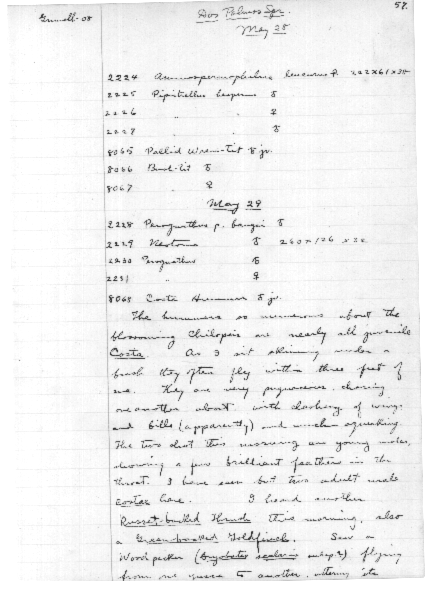 Grinnell-08
Dos Palmos Spr.
57.
May 28
2224 Ammospermophilus leucurus ♀. 222x61x38
2225 Pipistrellus hesperus ♂
2226 " " ♀
2227 " " ♂
8065 Pallid Wren-tit ♂ jv.
8066 Bush-tit ♂
8067 " ♀
May 29
2228 Perognathus p. bangsi ♂
2229 Neotoma ♂ 260 x 126 x 32
2230 Perognathus ♂
2231 " ♀
8068 Costa Hummer ♂ jv.
The hummers so numerous about the
blossoming Chilopsis are nearly all juvenile
Costa. As I sit skinning under a
bush they often fly within three feet of
me. They are very pugnacious, chasing
one another about with clashing of wings
and bills (apparently) and much squeaking.
The two shot this morning are young males,
showing a few brilliant feathers in the
throat. I have seen but two adult male
costae here. I heard another
Russet-backed Thrush this morning, also
a Green-backed Goldfinch. Saw a
Woodpecker (Dryobates scalaris) flying
from one yucca to another, uttering its